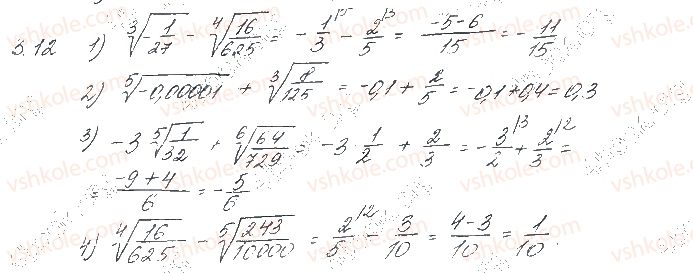 3.12 1) ∛(-1/27) - ∜(16/625) = -1/3^{|5} - 2/5^{|3} = (-5-6)/15 = -11/15
2) ⁵√(-0,00001) + ∛(8/125) = -0,1 + 2/5 = -0,1 + 0,4 = 0,3
3) -3 ⁵√(1/32) + ⁶√(64/729) = -3 1/2 + 2/3 = -3/2^{|3} + 2/3^{|2} =
= (-9+4)/6 = -5/6
4) ∜(16/625) - ⁵√(243/10000) = 2/5^{|2} - 3/10 = (4-3)/10 = 1/10.
vshkole.com